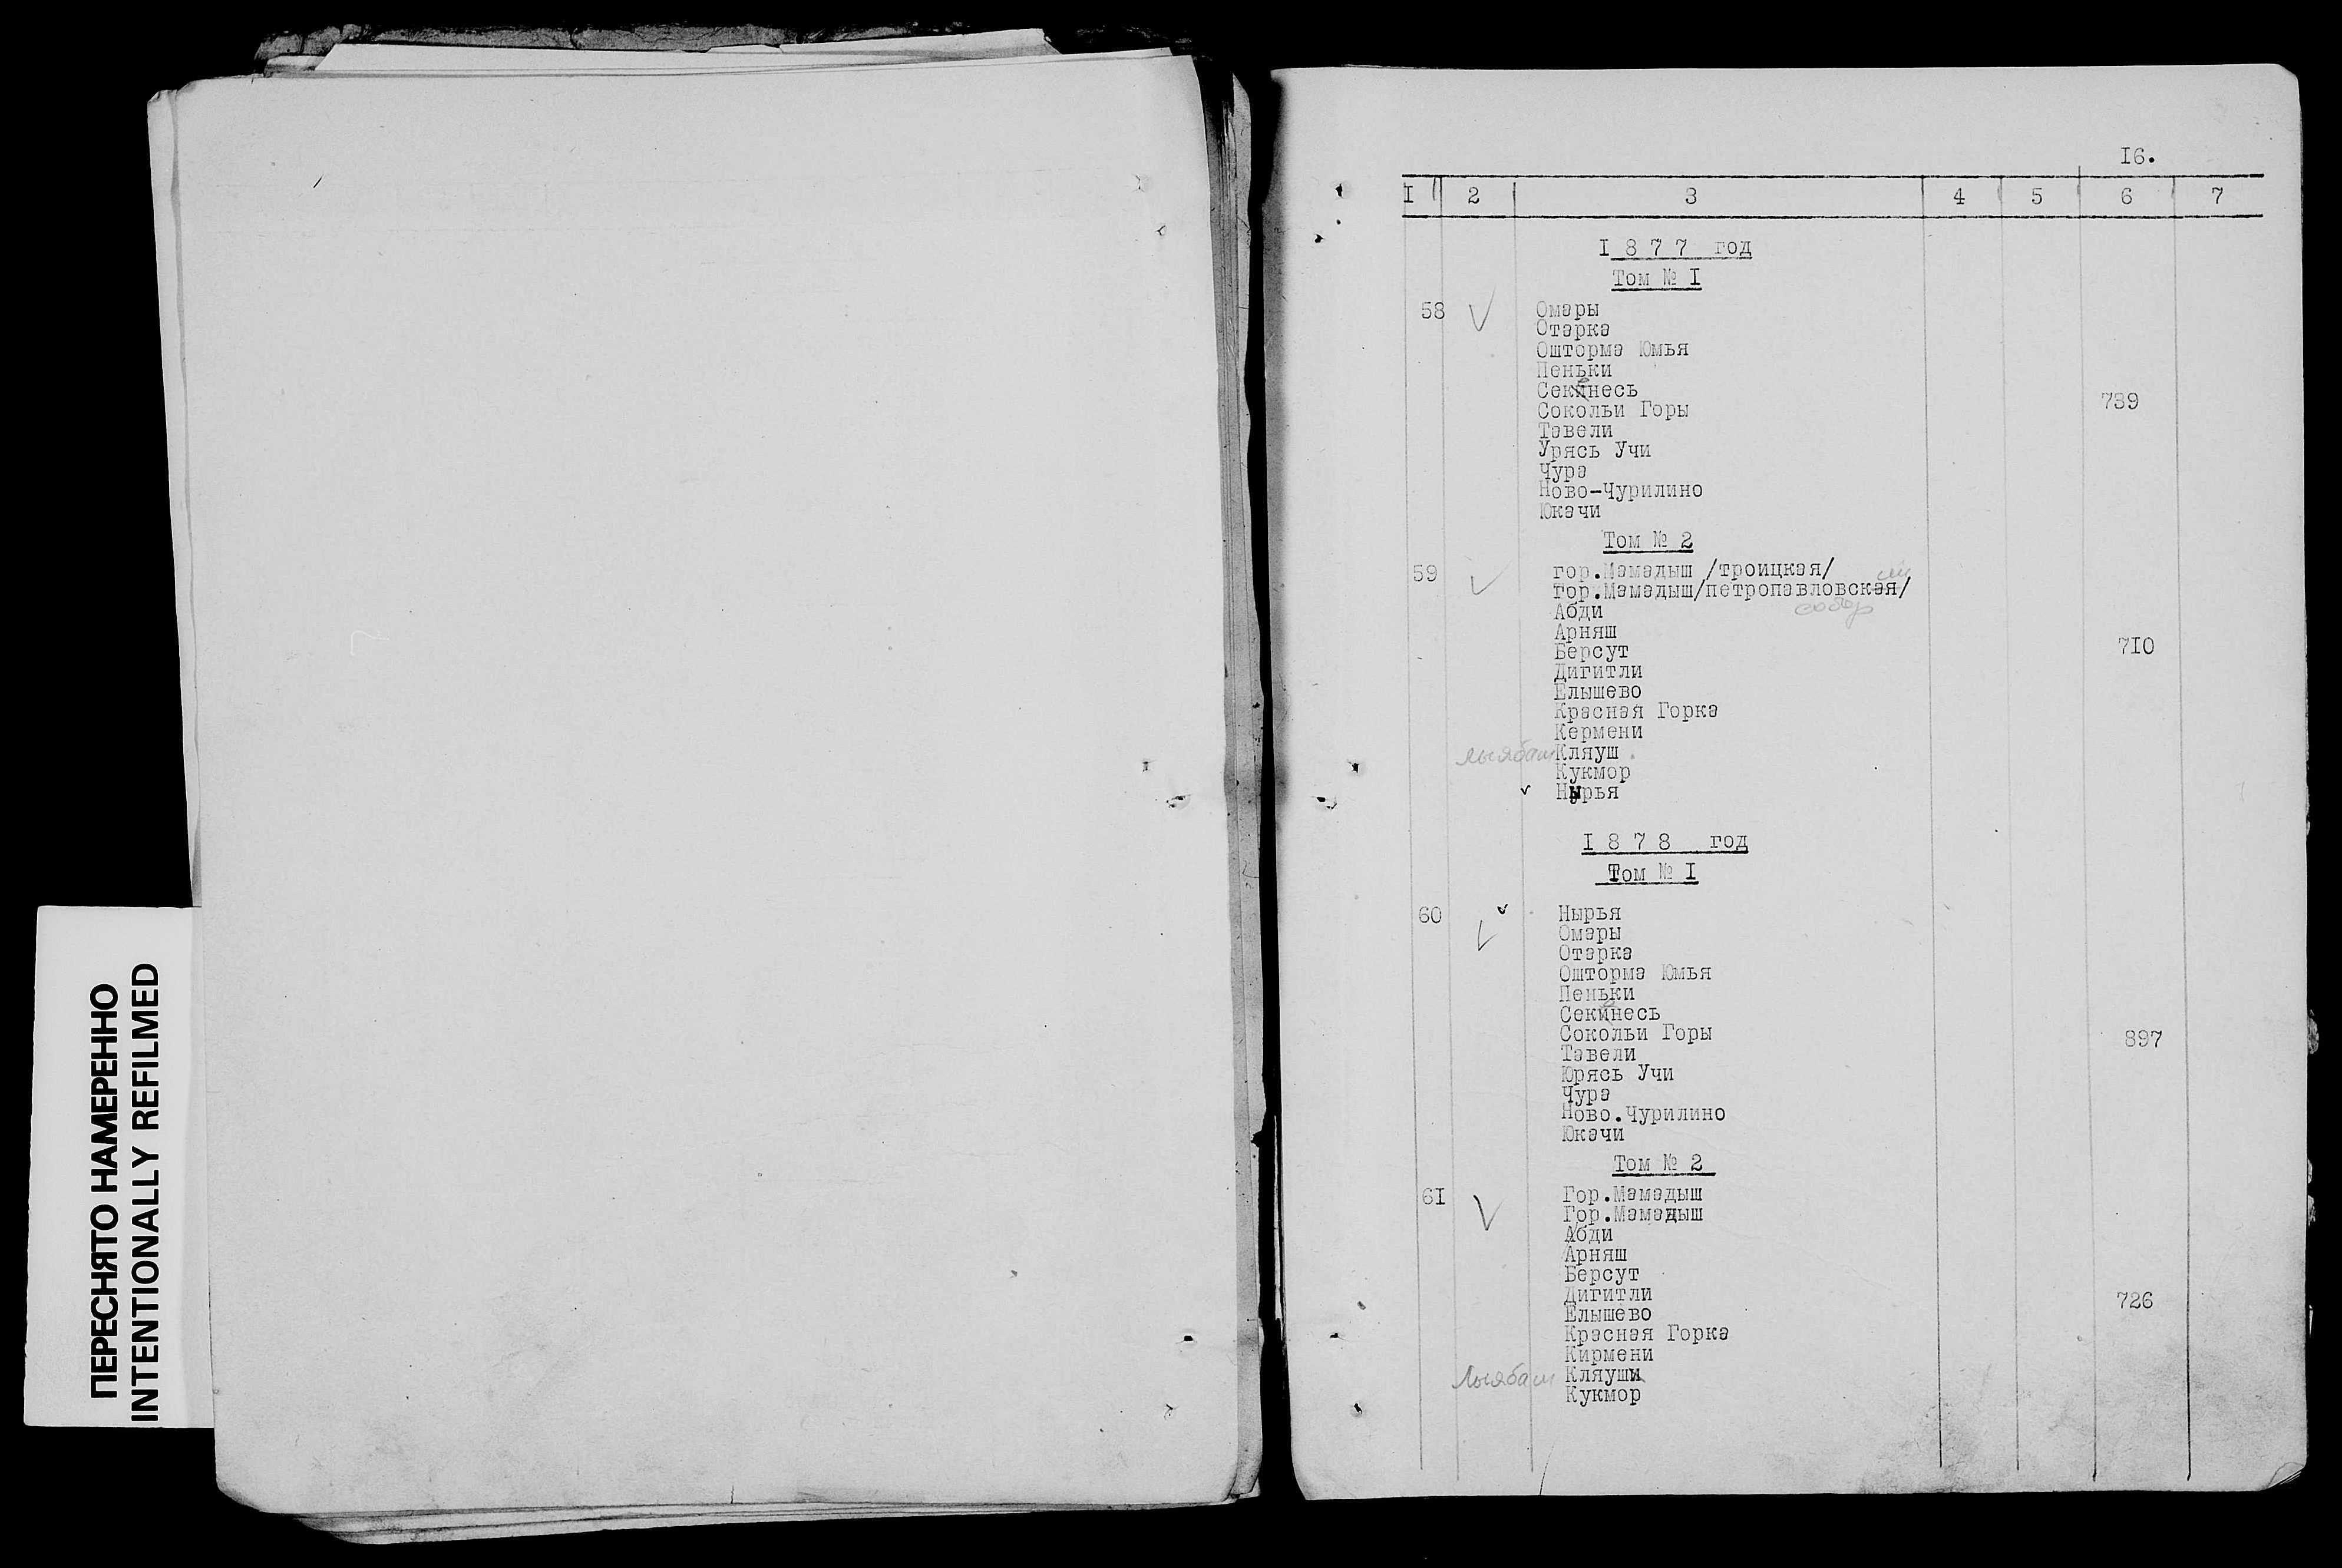 ПЕРЕСНЯТО НАМЕРЕННО
INTENTIONALLY REFILMED
I6.
I 2 3 4 5 6 7
I 8 7 7 год
Том № I
58 Омары
Отарка
Ошторма Юмья
Пеньки
Секинесь
Сокольи Горы 739
Тавели
Урясь Учи
Чура
Ново-Чурилино
Юкачи
Том № 2
59 гор.Мамадыш /троицкая/
гор.Мамадыш/петропавловская/
собор
Абди
Арняш
Берсут 7I0
Дигитли
Елышево
Красная Горка
Кермени
Кляуш
Кукмор
Нырья
I 8 7 8 год
Том № I
60 Нырья
Омары
Отарка
Ошторма Юмья
Пеньки
Секинесь
Сокольи Горы 897
Тавели
Юрясь Учи
Чура
Ново.Чурилино
Юкачи
Том № 2
6I Гор.Мамадыш
Гор.Мамадыш
Абди
Арняш
Берсут
Дигитли 726
Елышево
Красная Горка
Кирмени
Кляуши
Кукмор